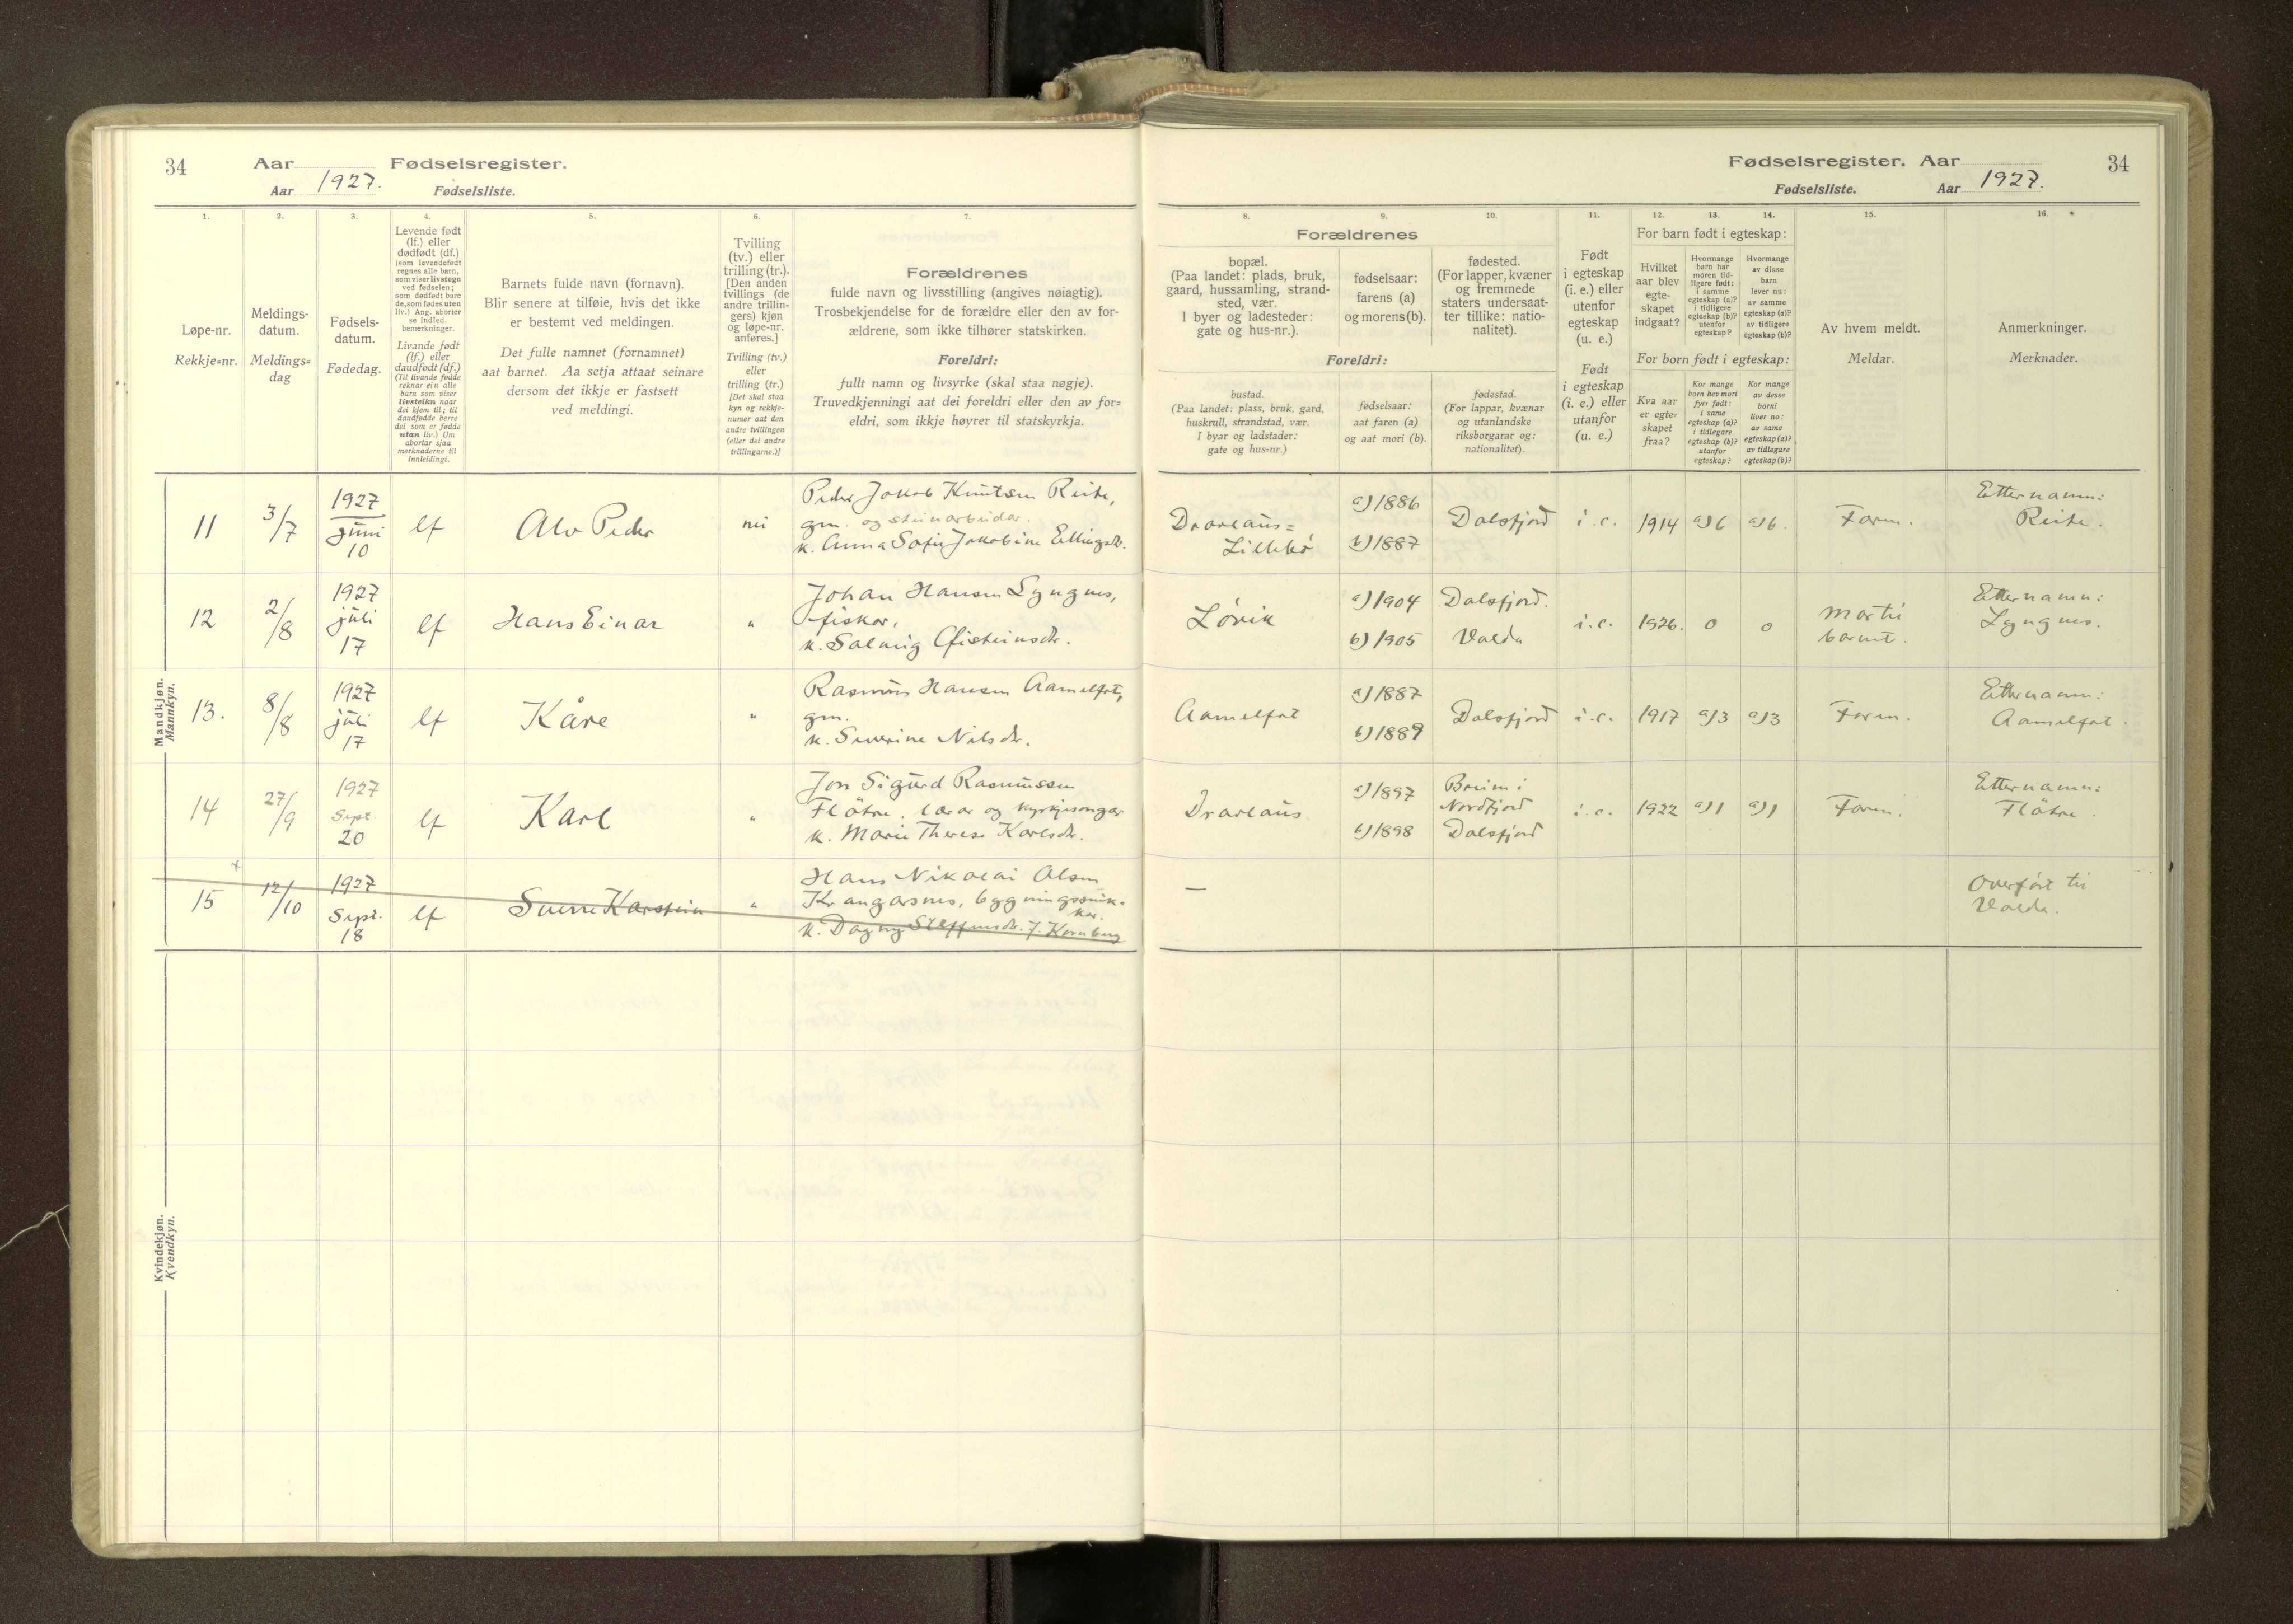 34
Aar
Fødselsregister.
Aar 1927.
Fødselsliste.
Fødselsregister. Aar
34
Fødselsliste.
Aar 1927.
1.
Løpe-nr.
Rekkje=nr.
2.
Meldings-
datum.
Meldings=
dag
3.
Fødsels-
datum.
Fødedag.
4.
Levende født
(lf.) eller
dødfødt (df.)
(som levendefødt
regnes alle barn,
som viser livstegn
ved fødselen;
som dødfødt bare
de, som fødes uten
liv.) Ang. aborter
se indled.
bemerkninger.
Livande født
(lf.) eller
daudfødt (df.)
(Til livande fødde
reknar ein alle
barn som viser
livsteikn naar
dei kjem til; til
daudfødde berre
dei som er fødde
utan liv.) Um
abortar sjaa
merknaderne til
innleidingi.
5.
Barnets fulde navn (fornavn).
Blir senere at tilføie, hvis det ikke
er bestemt ved meldingen.
Det fulle namnet (fornamnet)
aat barnet. Aa setja attaat seinare
dersom det ikkje er fastsett
ved meldingi.
6.
Tvilling
(tv.) eller
trilling (tr.).
[Den anden
tvillings (de
andre trillin-
gers) kjøn
og løpe-nr.
anføres.]
Tvilling (tv.)
eller
trilling (tr.)
[Det skal staa
kyn og rekkje-
numer aat den
andre tvillingen
(eller dei andre
trillingarne.)]
7.
Forældrenes
fulde navn og livsstilling (angives nøiagtig).
Trosbekjendelse for de forældre eller den av for-
ældrene, som ikke tilhører statskirken.
Foreldri:
fullt namn og livsyrke (skal staa nøgje).
Truvedkjenningi aat dei foreldri eller den av for=
eldri, som ikkje høyrer til statskyrkja.
Forældrenes
8.
bopæl.
(Paa landet: plads, bruk,
gaard, hussamling, strand-
sted, vær.
I byer og ladesteder:
gate og hus-nr.).
Foreldri:
bustad.
(Paa landet: plass, bruk, gard,
huskrull, strandstad, vær.
I byar og ladstader:
gate og hus=nr.)
9.
fødselsaar:
farens (a)
og morens (b).
fødselsaar:
aat faren (a)
og aat mori (b).
10.
fødested.
(For lapper, kvæner
og fremmede
staters undersaat-
ter tillike: natio-
nalitet).
fødestad.
(For lappar, kvænar
og utanlandske
riksborgarar og:
nationalitet).
11.
Født
i egteskap
(i. e.) eller
utenfor
egteskap
(u. e.)
Født
i egteskap
(i. e.) eller
utanfor
(u. e.)
For barn født i egteskap:
12.
Hvilket
aar blev
egte-
skapet
indgaat?
For born født i egteskap:
Kva aar
er egte=
skapet
fraa?
13.
Hvormange
barn har
moren tid-
ligere født:
i samme
egteskap (a)?
i tidligere
egteskap (b)?
utenfor
egteskap?
Kor mange
born hev mori
fyrr født:
i same
egteskap (a)?
i tidlegare
egteskap (b)?
utanfor
egteskap?
14.
Hvormange
av disse
barn
lever nu:
av samme
egteskap (a)?
av tidligere
egteskap (b)?
Kor mange
av desse
borni
liver no:
av same
egteskap (a)?
av tidlegare
egteskap (b)?
15.
Av hvem meldt.
Meldar.
16.
Anmerkninger.
Merknader.
Mandkjøn.
Mannkyn.
11
3/7
1927
juni
10
lf
Alv Peder
nei
Peder Jakob Knutsen Reite,
gm. og steinarbeidar.
k. Anna Sofie Jakobine Ellingsdr.
Dravlaus=
Lillebø
a) 1886
b) 1887
Dalsfjord
i. e.
1914
a) 6
a) 6.
Faren.
Etternamn:
Reite.
12
2/8
1927
juli
17
lf
Hans Einar
"
Johan Hansen Lyngnes,
fiskar,
k. Salmig Øisteinsdr.
Løvik
a) 1904
b) 1905
Dalsfjord.
Volda
i. e.
1926.
0
0
Mor til
barnet.
Etternamn:
Lyngnes.
13.
8/8
1927
juli
17
lf
Kåre
"
Rasmus Hansen Aamelfot,
gm.
k. Severine Nilsdr.
Aamelfot
a) 1887
b) 1889
Dalsfjord
i. e.
1917
a) 3
a) 3
Faren.
Etternamn:
Aamelfot.
14
27/9
1927
Sept.
20
lf
Karl
"
Jon Sigurd Rasmussen
Fløtre, lærar og kyrkjesongar
k. Marie Therese Karlsdr.
Dravlaus
a) 1897
b) 1898
Breim i
Nordfjord
Dalsfjord
i. e.
1922
a) 1
a) 1
Faren.
Etternamn:
Fløtre.
+
15
12/10
1927
Sept.
18
lf
Sverre Karstein
"
Hans Nikolai Olsen
Krangarsnes, byggningssnik-
kar.
k. Dagny Steffensdr. f. Kornberg
—
Overført til
Volda.
Kvindekjøn.
Kvendkyn.